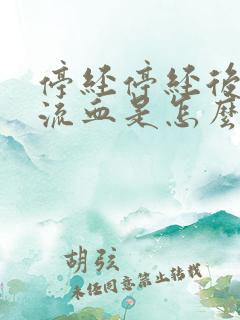 停经停经後
流血是怎麼
胡弦
未经同意禁止转载